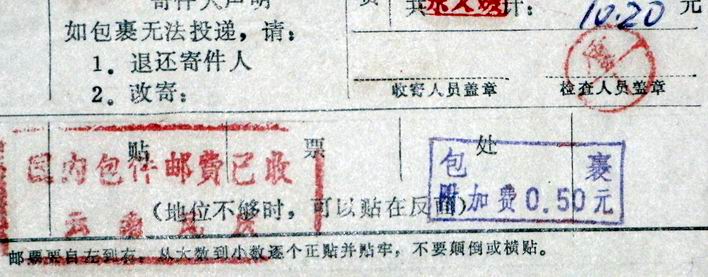 寄件人声明
如包裹无法投递，请：
1．退还寄件人
2．改寄：
共
计：
10.20 元
收寄人员盖章
检查人员盖章
贴 票 处
国内包件邮费已收
包裹
附加费0.50元
(地位不够时，可以贴在反面)
邮票要自左到右，从大数到小数逐个正贴并贴牢，不要颠倒或横贴。